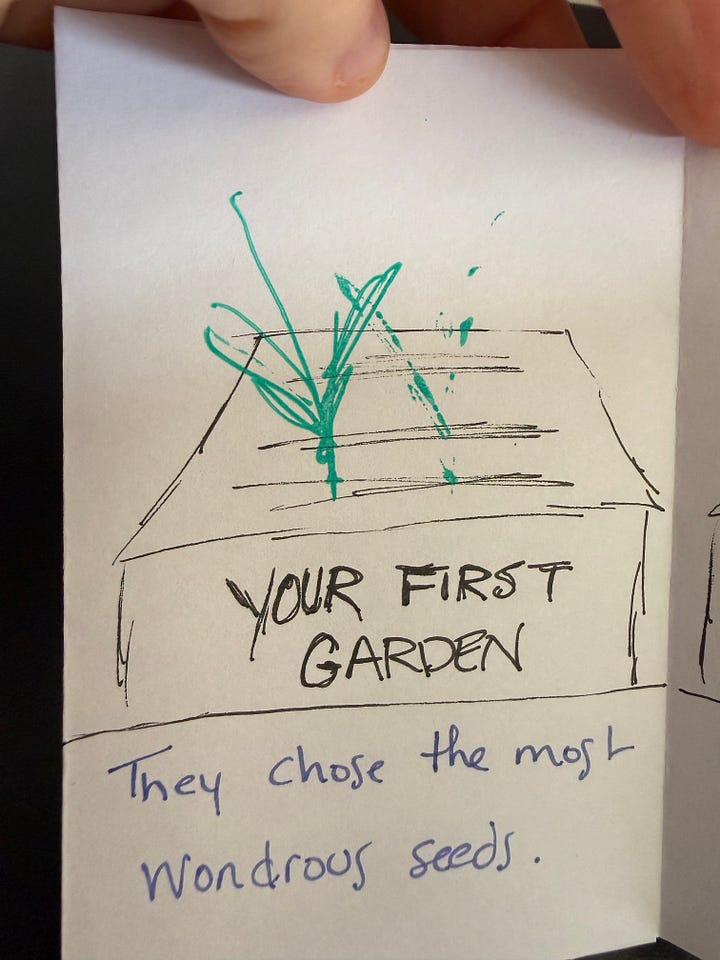 YOUR FIRST
GARDEN
They chose the most
Wondrous seeds.